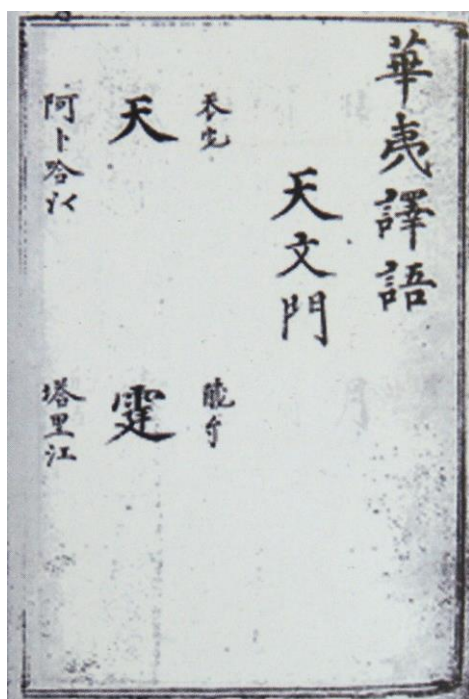 華夷譯語
天文門
天 霆
阿卜哈以 塔里江